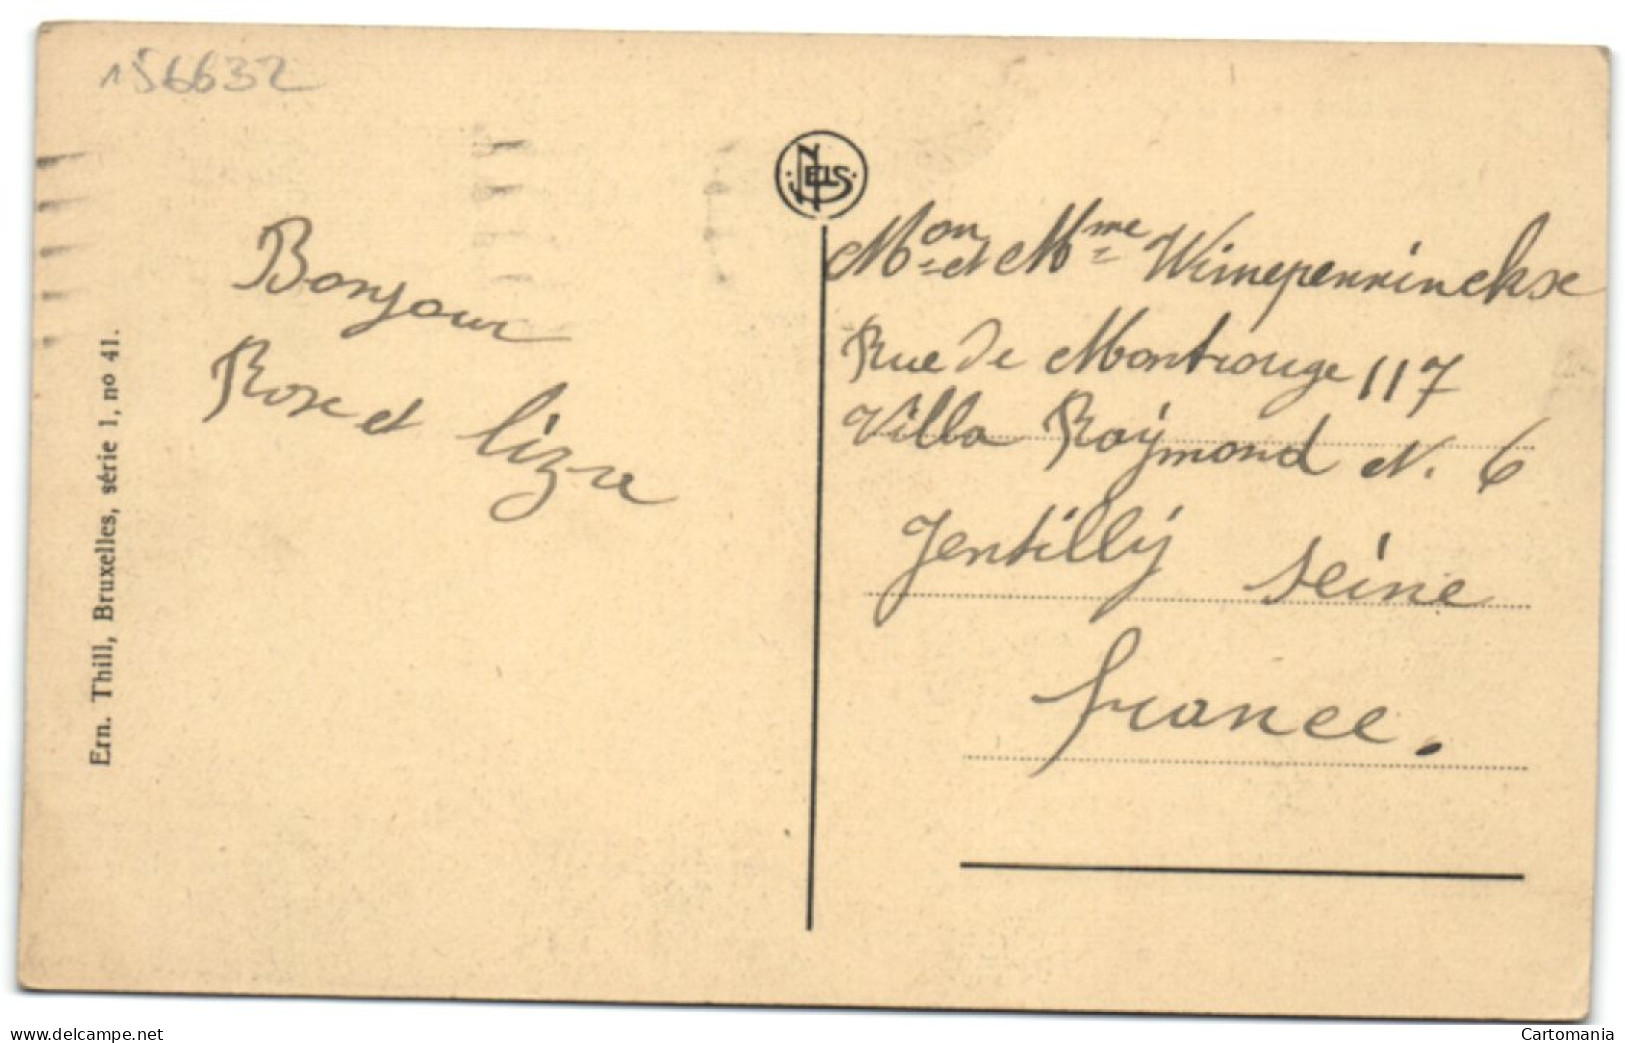 156632
NELS
Bonjour
Rose et
Ern. Thill, Bruxelles, série 1, no 41.
Mon et Mme
Rue de Montrouge 117
Villa Raymond N. 6
Jentilly Seine
france.
www.delcampe.net
Cartomania